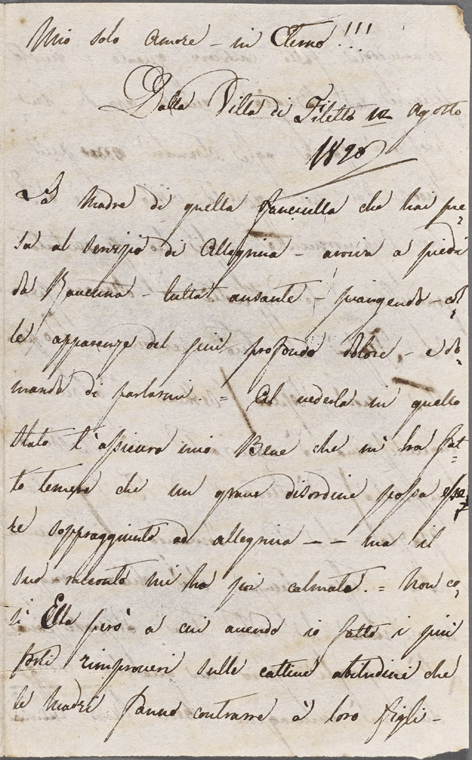 Mio solo Amore - in Eterno!!!
Dalla Villa di Filetto 12 Agosto
1820
La Madre di quella fanciulla che hai pre=
sa al servizio di Allegrina - arriva a piedi
da Ravenna - tutta ansante - piangendo - col=
le apparenze del più profondo dolore, - e do=
manda di parlarmi = Al vederla in quello
stato t'assicuro mio Bene che mi ha fat=
to temere che un grave disordine possa esse=
re sopraggiunto ad Allegrina - - ma il
suo racconto mi ha poi calmata. = Non co=
sì Ella però a cui avendo io fatto i più
forti rimproveri sulle cattive abitudini che
le Madri fanno contrarre à loro figli -